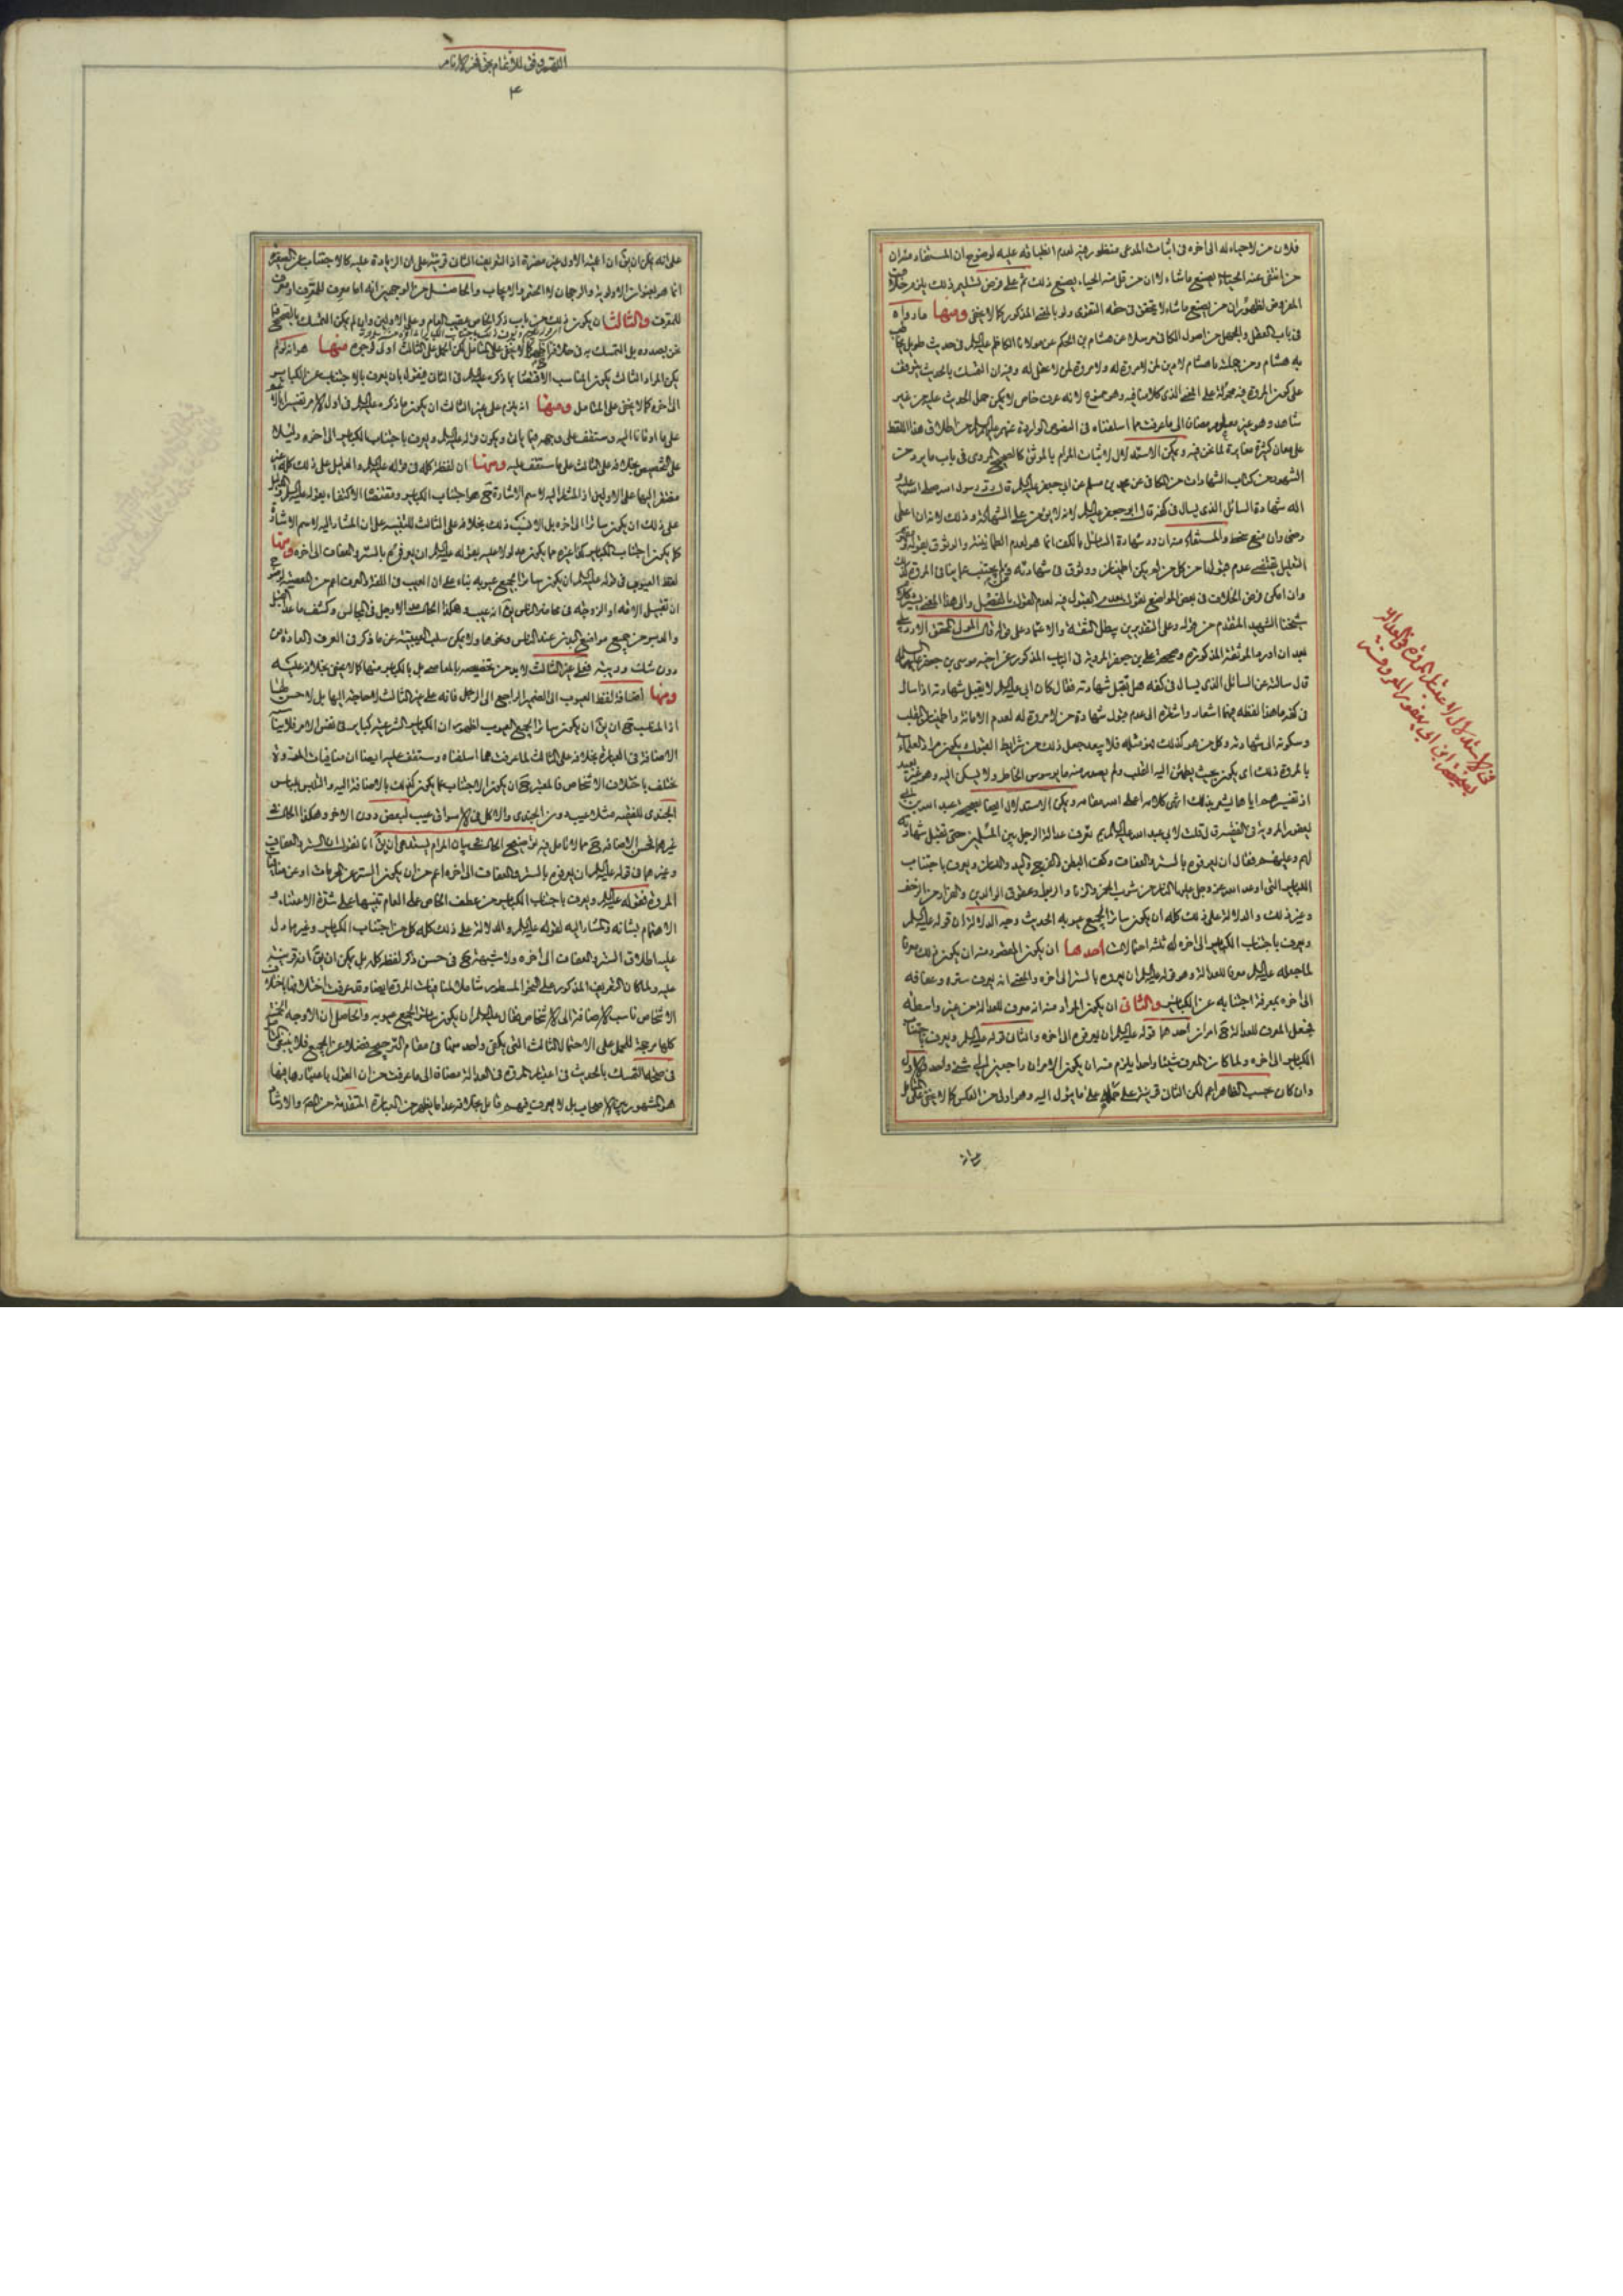 فلان من لا حياء له الى اخره فى اثبات المدعى منظور فيه لعدم انطباقه عليه لوضوح ان المستفاد منه ان
من انتفى عنه الحياء يصنع ما شاء لا ان من قل منه الحياء يصنع ذلك ثم على فرض تسليم ذلك يلزم خلاف
المفروض لظهور ان من يصنع ما شاء لا يتحقق فى حقه التقوى ولو بالمعنى المذكور كما لا يخفى ومنها ما رواه
فى باب العقل والجهل من اصول الكافى مرسلا عن هشام بن الحكم عن مولانا الكاظم عليه السلم فى حديث طويل
يه هشام ومن جملته يا هشام لا دين لمن لا مروة له ولا مروة لمن لا عقل له وفيه ان التمسك بالحديث يتوقف
على كون المروة فيه محمولة على المعنى الذى كلامنا فيه وهو ممنوع لانه عرف خاص لا يمكن حمل الحديث عليه من غير
شاهد وهو غير معلوم مضافا الى ما عرفت مما اسلفناه فى النصوص الواردة عنهم عليهم السلم من اطلاق هذا اللفظ
على معان كثيرة مغايرة لما نحن فيه ويمكن الاستدلال لاثبات المرام بالموثق كالصحيح المروى فى باب ما يرد من
الشهود من كتاب الشهادات من الكافى عن محمد بن مسلم عن ابى جعفر عليه السلم قال رد رسول الله صلى الله عليه و
اله شهادة السائل الذى يسال فى كفه قال ابو جعفر عليه السلم لانه لا يؤمن على الشهادة وذلك لانه ان اعطى
رضى وان منع سخط والمستفاد منه ان رد شهادة السائل بالكف انما هو لعدم الطمانينة والوثوق بقوله
التعليل يقتضى عدم قبولها من كل من لم يكن اطمينان ووثوق فى شهادته
وان امكن فرض الخلاف فى بعض المواضع نقول بعدم القبول فيه لعدم القول بالفصل والى هذا المعنى يشير كلام
شيخنا الشهيد المتقدم من قوله وعلى التقديرين يبطل الثقة والاعتماد على قوله قال المولى المحقق الاردبيلى
بعد ان اورد الموثقة المذكورة وصحيحة على بن جعفر المروية فى الباب المذكور عن اخيه موسى بن جعفر عليهما السلم
قال سالته عن السائل الذى يسال فى كفه هل تقبل شهادته فقال كان ابى عليه السلم لا يقبل شهادته اذا سال
فى كفه ما هذا لفظه فيهما اشعار واشارة الى عدم قبول شهادة من لا مروة له لعدم الامانة واطمينان القلب
وسكونه الى شهادته وكل من هو كذلك فهو مثله فلا يبعد جعل ذلك من شرايط القبول يكون مراد العلماء
بالمروة ذلك اى يكون بحيث يطمئن اليه القلب ولم يصدر منه ما يوسوس الخاطر ولا يسكن اليه وهو غير بعيد
اذ تفسيرهم اياها يشير بذلك انتهى كلامه اعلى الله مقامه ويمكن الاستدلال ايضا بصحيحة عبد الله بن ابى
يعفور المروية فى الفقيه قال قلت لابى عبد الله عليه السلم بم تعرف عدالة الرجل بين المسلمين حتى تقبل شهادته
لهم وعليهم فقال ان تعرفوه بالستر والعفاف وكف البطن والفرج واليد واللسان ويعرف باجتناب
الكبائر التى اوعد الله عز وجل عليها النار من شرب الخمر والزنا والربا وعقوق الوالدين والفرار من الزحف
وغير ذلك والدلالة على ذلك كله ان يكون ساترا لجميع عيوبه الحديث وجه الدلالة ان قوله عليه السلم
ويعرف باجتناب الكبائر الى اخره له ثلثة احتمالات احدها ان يكون المقصود منه ان يكون ذلك معرفا
لما جعله عليه السلم معرفا للعدالة وهو قوله عليه السلم ان تعرفوه بالستر الى اخره والمعنى انه يعرف ستره وعفافه
الى اخره بمعرفة اجتنابه عن الكبائر والثانى ان يكون المراد منه انه معرف للعدالة من غير واسطة
فجعل المعرف للعدالة ح امران احدهما قوله عليه السلم ان تعرفوه الى اخره والثانى قوله عليه السلم ويعرف باجتناب
الكبائر الى اخره ولما كان المعرف شيئا واحدا يلزم منه ان يكون الامران راجعين الى شئ واحد فالاول
وان كان بحسب الظاهر اعم لكن الثانى قرينة على حمله على ما يئول اليه وهو اولى من العكس كما لا يخفى على المتامل
فى الاستدلال لاعتبار المروة فى العدالة
بصحيحة ابن ابى يعفور المعروفة
على انه يمكن ان يق ان اعمية الاول غير مضرة اذ التعريف الثانى قرينة على ان الزيادة عليه كالاجتناب عن الصغيرة
انما هو بعنوان الاولوية والرجحان لا الحتم والايجاب والحاصل من الوجهين انه اما معرف للمعرف او معرف
للمعرف والثالث ان يكون ذلك من باب ذكر الخاص بعقب العام وعلى الاولين وان لم يمكن التمسك بالصحيح لما
نحن بصدده بل التمسك به فى خلافنا اظهر كما لا يخفى على المتامل لكن الحمل على الثالث اولى لوجوه منها هو انه لو لم
يكن المراد الثالث يكون المناسب الاقتصار بما ذكره عليه السلم فى الثانى فيقول بان يعرف بالاجتناب عن الكبائر
الى اخره كما لا يخفى على المتامل ومنها انه يلزم على غير الثالث ان يكون ما ذكره عليه السلم فى اول الامر تفسيرا
على ما اومانا اليه وستقف على وجهه فيما ياتى ويكون قوله عليه السلم ويعرف باجتناب الكبائر الى اخره دليلا
على التخصيص بخلافه على الثالث على ما ستقف عليه ومنها ان لفظة كله فى قوله عليه السلم والدليل على ذلك كله غير
مفتقر اليها على الاولين اذ المشار اليه لاسم الاشارة ح هو اجتناب الكبائر ومقتضاه الاكتفاء بقوله عليه السلم والدليل
على ذلك ان يكون ساترا الى اخره بل الانسب ذلك بخلافه على الثالث للتنبيه على ان المشار اليه لاسم الاشارة
كما يكون اجتناب الكبائر كذا غيره مما يكون مدلولا عليه بقوله عليه السلم ان تعرفوه بالستر والعفاف الى اخره ومنها
لفظ العيوب فى قوله عليه السلم ان يكون ساترا لجميع عيوبه بناء على ان العيب فى اللغة والعرف اعم من المعصية
ان تقبيل الامة او الزوجة فى محاضر الناس يق انه عيب وهكذا الحال مد الارجل فى المجالس وكشف ما عدا القبل
والدبر من جميع مواضع البدن عند الناس ونحوها ولا يمكن سلب العيبية عن ما ذكر فى العرف والعادة من
دون شك وريبة فعلى غير الثالث لا بد من تخصيصه بالمعاصى بل بالكبائر منها كما لا يخفى بخلافه عليه
ومنها اضافة لفظ العيوب الى الضمير الراجع الى الرجل فانه على غير الثالث لا حاجة اليها بل لا حسن لها
اذ المناسب ح ان يق ان يكون ساترا لجميع العيوب لظهور ان الكبائر الشرعية كبائر فى نفس الامر فلا يناسب
الاضافة فى العبارة بخلافه على الثالث لما عرفت مما اسلفناه وستقف عليه ايضا ان منافيات المروة
تختلف باختلاف الاشخاص فالمعتبر ح ان يكون الاجتناب عما يكون كذلك بالاضافة اليه والتلبس بلباس
الجندى للفقيه مثلا عيب دون الجندى والاكل فى الاسواق عيب لبعض دون الاخر وهكذا الحال فى
غيرهما فحسن الاضافة ح مما لا تامل فيه توضيح الحال فى بيان المرام يستدعى ان يق انا نقول ان الستر والعفاف
وغيرهما فى قوله عليه السلم ان تعرفوه بالستر والعفاف الى اخره اعم من ان يكون الستر عن المحرمات او عن منافيات
المروة فقوله عليه السلم ويعرف باجتناب الكبائر من عطف الخاص على العام تنبيها على شدة الاعتناء و
الاهتمام بشانه والمشار اليه لقوله عليه السلم والدلالة على ذلك كله كل من اجتناب الكبائر وغيره مما دل
عليه اطلاق الستر والعفاف الى اخره ولا شبهة ح فى حسن ذكر لفظ كله بل يمكن ان يق انه قرينة
عليه ولما كان التعريف المذكور على النحو المسطور شاملا لمنافيات المروة ايضا وقد عرفت اختلافها باختلاف
الاشخاص ناسب الاضافة الى الاشخاص فقال عليه السلم ان يكون ساترا لجميع عيوبه والحاصل ان الاوجه الخمسة
كلها مرجحة للحمل على الاحتمال الثالث التى يكفى واحد منها فى مقام الترجيح فضلا عن الجميع فلا ينبغى التامل
فى صحة التمسك بالحديث فى اعتبار المروة فى العدالة مضافا الى ما عرفت من ان القول باعتبارها فيها
هو المشهور بين الاصحاب بل لا يعرف فيهم قائل بخلافه عدا ما يظهر من العبارة المتقدمة من المعتبر والارشاد